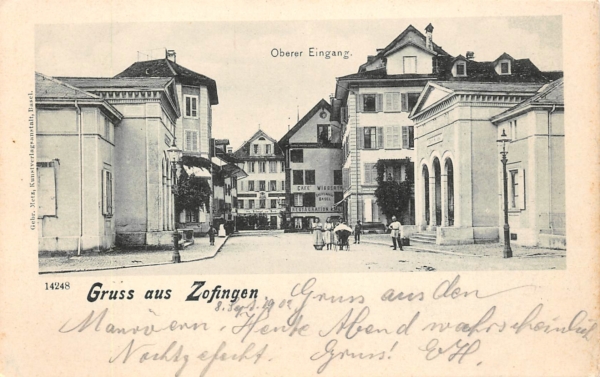 Oberer Eingang.
Gebr. Metz, Kunstverlagsanstalt, Basel.
CAFÉ WIRTSCHAFT
RESTAURATION
14248 Gruss aus Zofingen
8. Sept. 1902 Gruss aus den
Manövern. Heute Abend wahrscheinlich
Nachtgefecht. Gruss! EH.